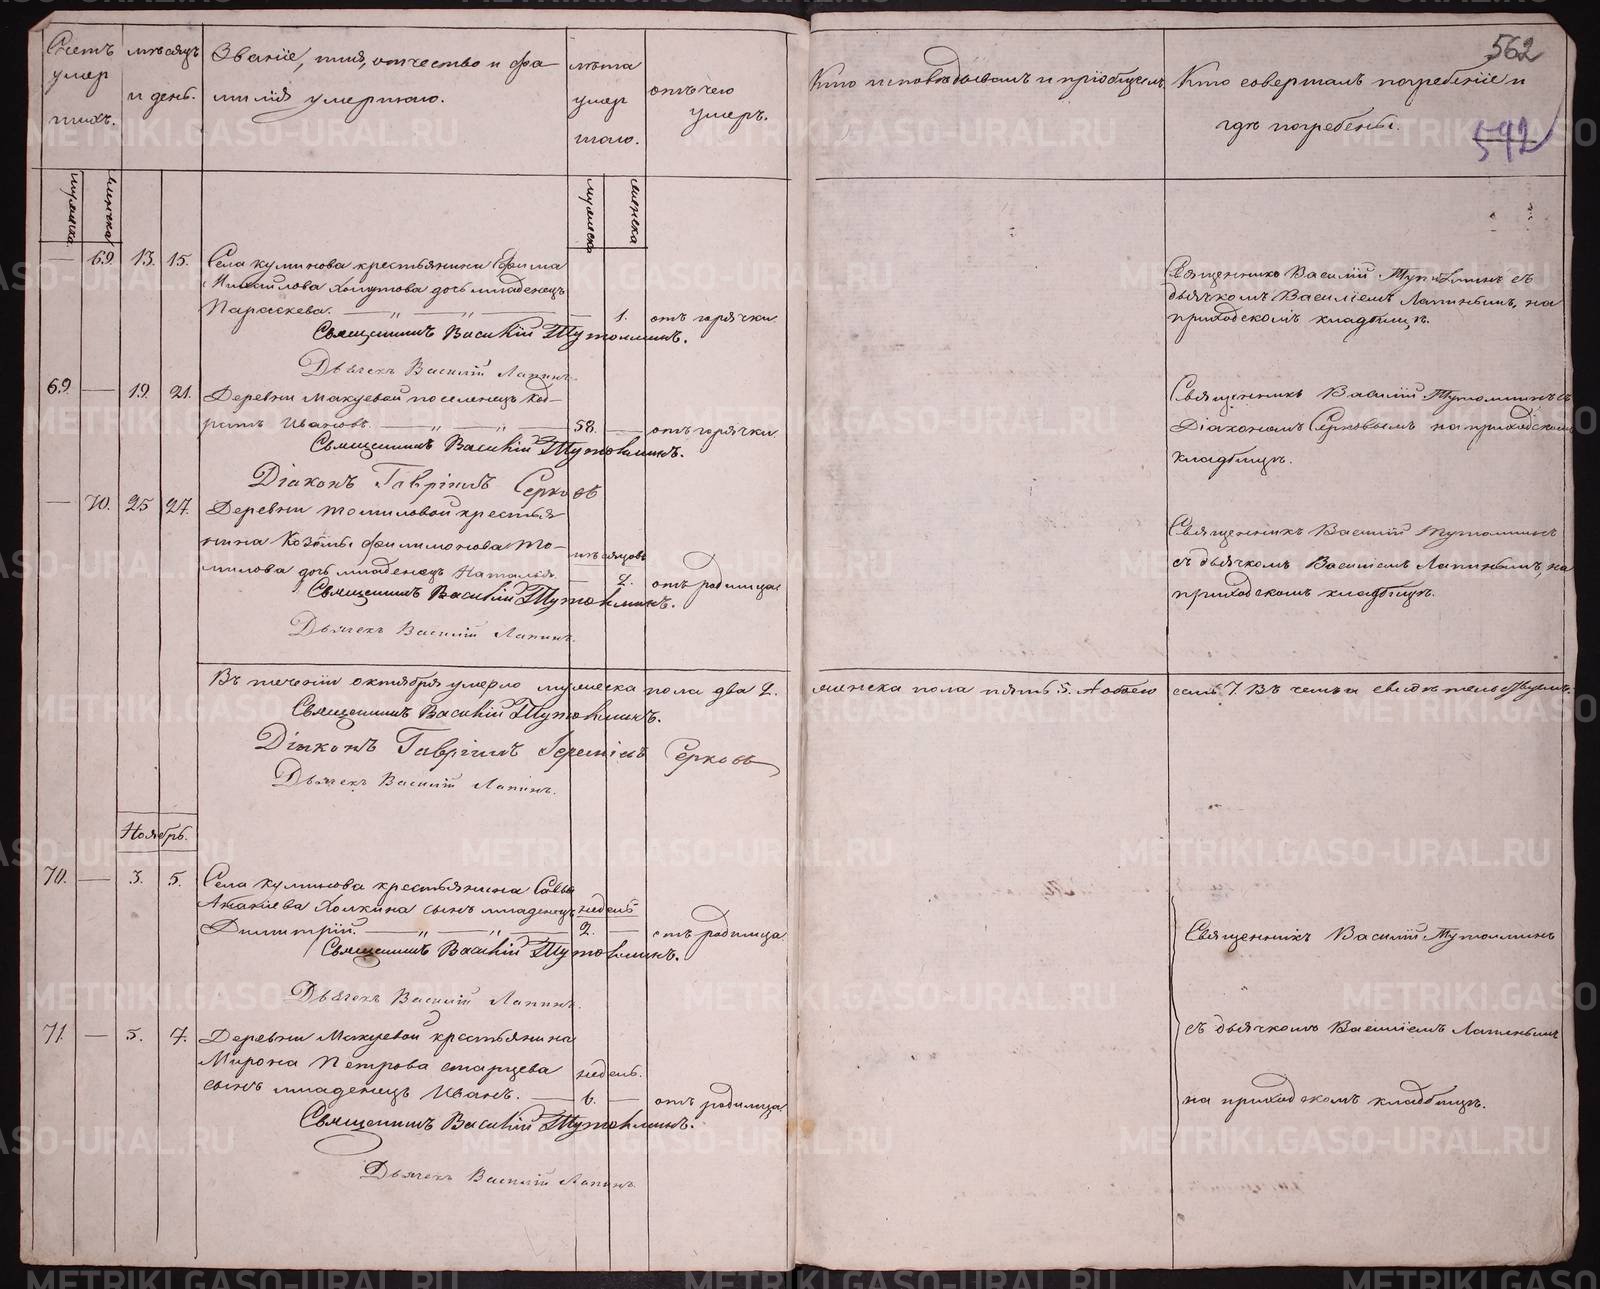 Счетъ умер шихъ.
мѣсяцъ и день.
Званіе, имя, отчество и фа-
милія умершаго.
лѣта умер шаго.
отъ чего умеръ.
Кто исповѣдывалъ и пріобщалъ
Кто совершалъ погребеніе и
гдѣ погребены.
562
592
мужеска
женска
мужеска
женска
— 69. 13. 15. Села куминова крестьянина Ефима
Михайлова Хомутова дочь младенецъ
Параскева. — „ — „ — 1. отъ горячки.
Священникъ Василій Тутолминъ.
Дьячекъ Василій Лапинъ.
Священникъ Василій Тутолминъ съ
дьячкомъ Василіемъ Лапинымъ, на
приходскомъ кладбищѣ.
69. — 19. 21. Деревни Макуевой поселенецъ Код-
ратъ Ивановъ. — „ — „ — 58. — отъ горячки.
Священникъ Василій Тутолминъ.
Діаконъ Гавріилъ Серковъ
Священникъ Василій Тутолминъ съ
Діакономъ Серковымъ на приходскомъ
кладбищѣ.
— 70. 25 27. Деревни томиловой крестья
нина Козьмы филимонова То-
милова дочь младенецъ Наталья. мѣсяцовъ — 2. отъ родимца.
Священникъ Василій Тутолминъ.
Дьячекъ Василій Лапинъ.
Священникъ Василій Тутолминъ
съ дьячкомъ Василіемъ Лапинымъ, на
приходскомъ кладбищѣ.
Въ теченіи октября умерло мужеска пола два 2. женска пола пять 5. А обоего семь 7. Въ чемъ и свидѣтельствуемъ.
Священникъ Василій Тутолминъ.
Діаконъ Гавріилъ Іереміевъ Серковъ
Дьячекъ Василій Лапинъ.
Ноябрь.
70. — 3. 5. Села куминова крестьянина Савы
Акакіева Холкина сынъ младенецъ недель
Димитрій. — „ — „ — 2. — отъ родимца.
Священникъ Василій Тутолминъ.
Дьячекъ Василій Лапинъ.
71. — 5. 7. Деревни Макуевой крестьянина
Мирона Петрова старцева недель.
сынъ младенецъ Иванъ. — 6. — отъ родимца.
Священникъ Василій Тутолминъ.
Дьячекъ Василій Лапинъ.
Священникъ Василій Тутолминъ
съ дьячкомъ Василіемъ Лапинымъ
на приходскомъ кладбищѣ.
METRIKI.GASO-URAL.RU